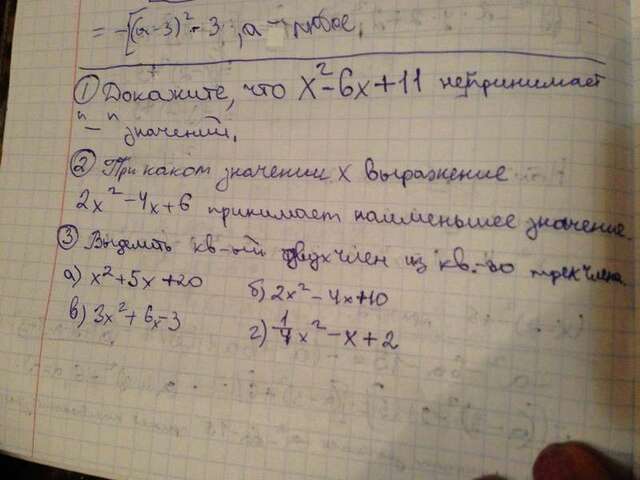 = -[(a-3)² - 3 ; a - любое.
① Докажите, что x² - 6x + 11 не принимает
"-" значений.
② При каком значении x выражение
2x² - 4x + 6 принимает наименьшее значение.
③ Выделить кв-ый двухчлен из кв.-го трехчлена.
а) x² + 5x + 20 б) 2x² - 4x + 10
в) 3x² + 6x - 3 г) 1/4 x² - x + 2